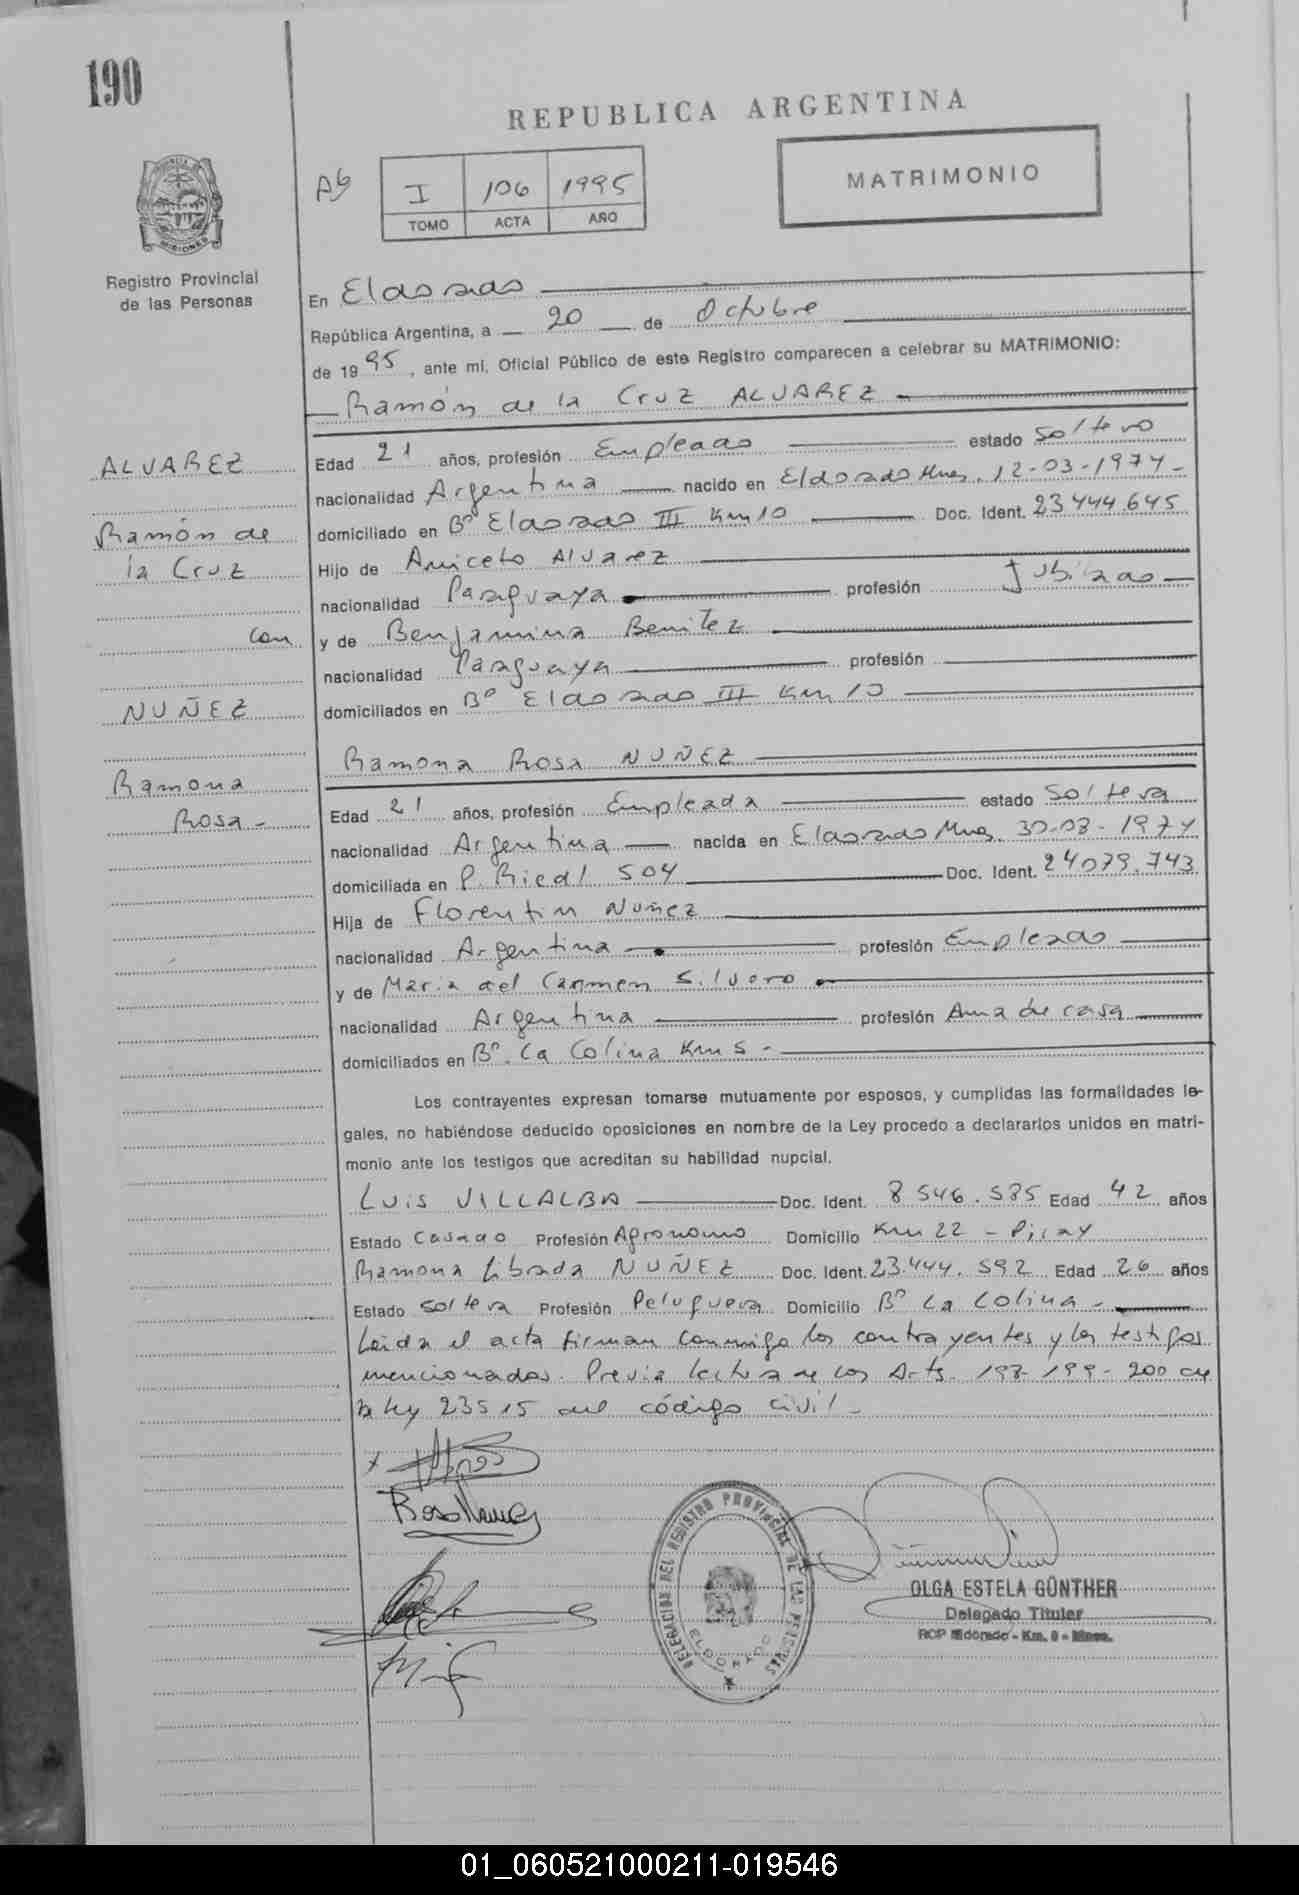 190
REPUBLICA ARGENTINA
MATRIMONIO
I 106 1995
TOMO ACTA AÑO
Registro Provincial
de las Personas
En Eldorado
República Argentina, a 20 de Octubre
de 1995, ante mi, Oficial Público de este Registro comparecen a celebrar su MATRIMONIO:
Ramón de la Cruz ALVAREZ
ALVAREZ
Ramón de
la Cruz
con
NUÑEZ
Ramona
Rosa-
Edad 21 años, profesión Empleado estado Soltero
nacionalidad Argentina nacido en Eldorado Mnes. 12-03-1974-
domiciliado en Bº Eldorado III Km 10 Doc. Ident. 23.444.645
Hijo de Aniceto Alvarez
nacionalidad Paraguaya profesión Jubilado
y de Benjamina Benitez
nacionalidad Paraguaya profesión
domiciliados en Bº Eldorado III Km 10
Ramona Rosa NUÑEZ
Edad 21 años, profesión Empleada estado Soltera
nacionalidad Argentina nacida en Eldorado Mnes. 30-08-1974
domiciliada en P. Riedl 504 Doc. Ident. 24079.743
Hija de Florentin Nuñez
nacionalidad Argentina profesión Empleado
y de Maria del Carmen Silvero
nacionalidad Argentina profesión Ama de casa
domiciliados en Bº. La Colina Km 5-
Los contrayentes expresan tomarse mutuamente por esposos, y cumplidas las formalidades le-
gales, no habiéndose deducido oposiciones en nombre de la Ley procedo a declararlos unidos en matri-
monio ante los testigos que acreditan su habilidad nupcial.
Luis VILLALBA Doc. Ident. 8546.585 Edad 42 años
Estado Casado Profesión Agronomo Domicilio Km 22 - Piray
Ramona Librada NUÑEZ Doc. Ident. 23.444.592 Edad 26 años
Estado Soltera Profesión Peluquera Domicilio Bº La Colina-
Leida el acta firman conmigo los contrayentes y los testigos
mencionados. Previa lectura de los Arts. 198-199-200 de
la ley 23515 del código civil-
Rosa Nuñez
DELEGACION DEL REGISTRO PROVINCIAL DE LAS PERSONAS
ELDORADO
OLGA ESTELA GÜNTHER
Delegado Titular
RCP Eldorado - Km. 9 - Mnes.
01_060521000211-019546